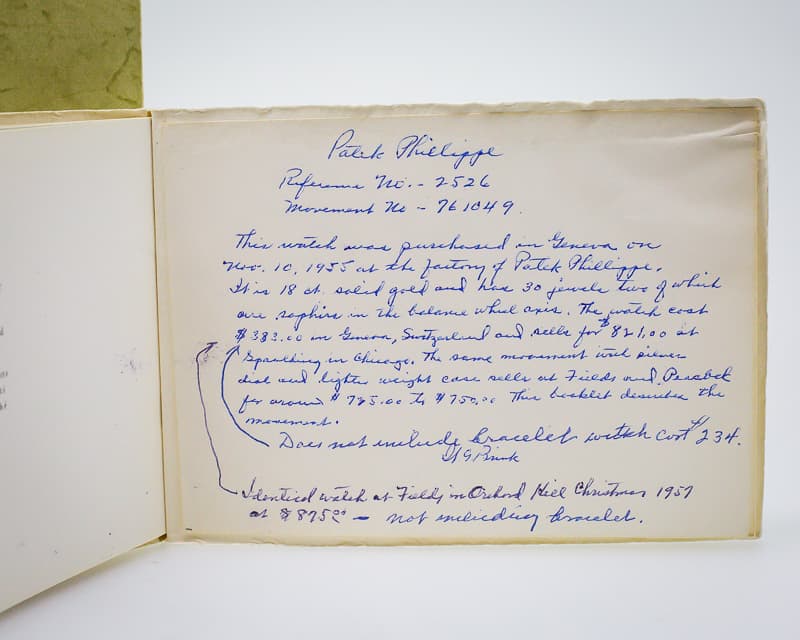 Patek Phillippe
Reference No. - 2526
Movement No - 761049.
This watch was purchased in Geneva on
Nov. 10, 1955 at the factory of Patek Phillippe.
It is 18 ct. solid gold and has 30 jewels two of which
are saphire in the balance wheel axis. The watch cost
$383.00 in Geneva, Switzerland and sells for $821.00 at
Spaulding in Chicago. The same movement with
dial and lighter weight case sells at Fields and Peacock
for around $ to $750.00 This booklet describes the
movement.
Does not include bracelet which cost $234.
Identical watch at Fields in Orchard Hill Christmas 1957
at $875.00 - not including bracelet.